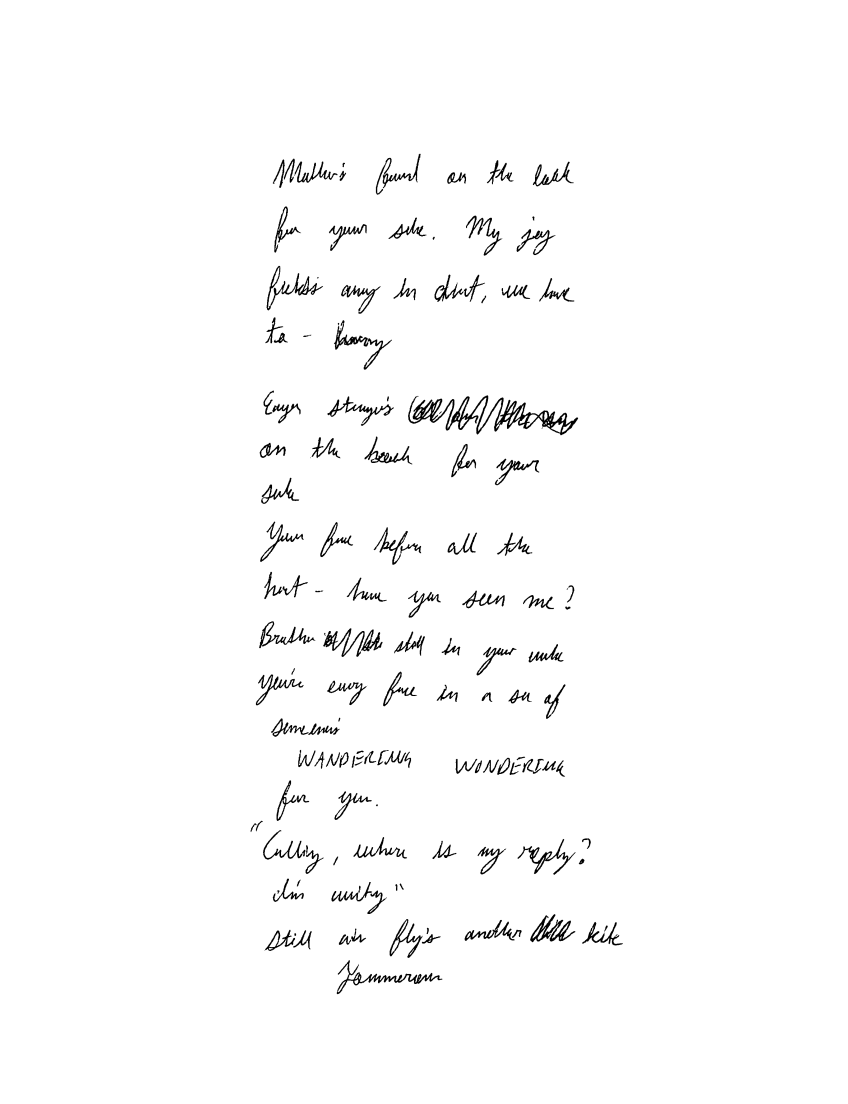 Mother's found on the
for your sake. My joy
fields away in dust, we have
to -
Eager
on the beach for your
sake
Your face before all the
hort - have you seen me?
Brother still in your wake
you're every face in a sea of
WANDERING WONDERING
for you.
"Calling, where is my reply?
I'm waiting"
still air fly's another kite